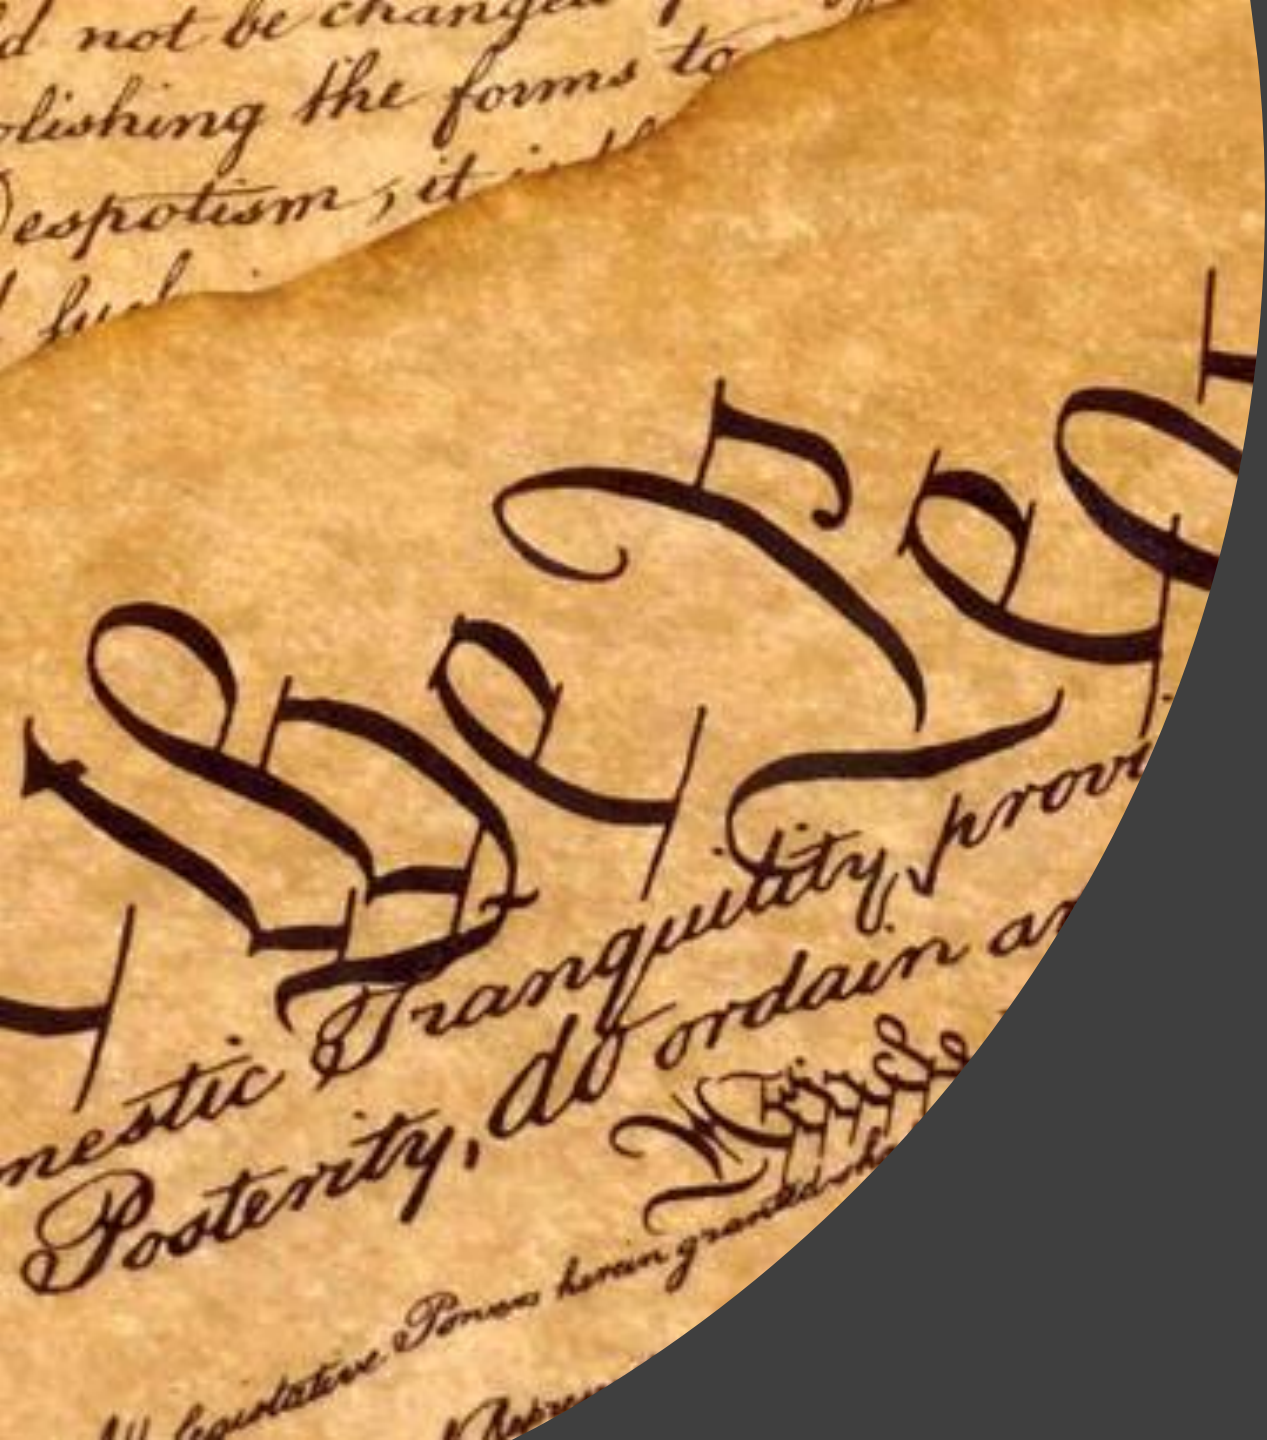 d not be changed
olishing the forms to
Despotism, it is
such
the Peo
mestic Tranquility, provi
Posterity, do ordain an
Article
All legislative Powers herein granted sha
Repres